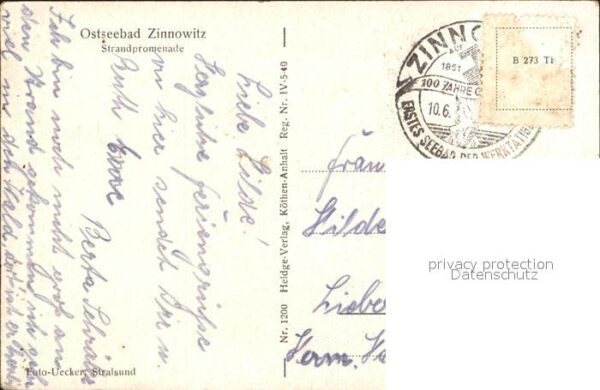 Ostseebad Zinnowitz
Strandpromenade
Liebe Hilde!
Herzliche Feriengrüsse
von hier sendet Dir u.
Ruth
Berta
Ich bin noch nicht erst am
den Strand gekommen, ich geh
viel in den Wald da ist er
Foto-Uecker, Stralsund
Nr. 1200 Heldge-Verlag, Köthen-Anhalt Reg. Nr. IV-5-40
ZINNO
1851
100 JAHRE
10.6.
ERSTES SEEBAD DER WERKTÄTIG
B 273 Ti
Frau
Hilde
Lieber
Herm.
privacy protection
Datenschutz